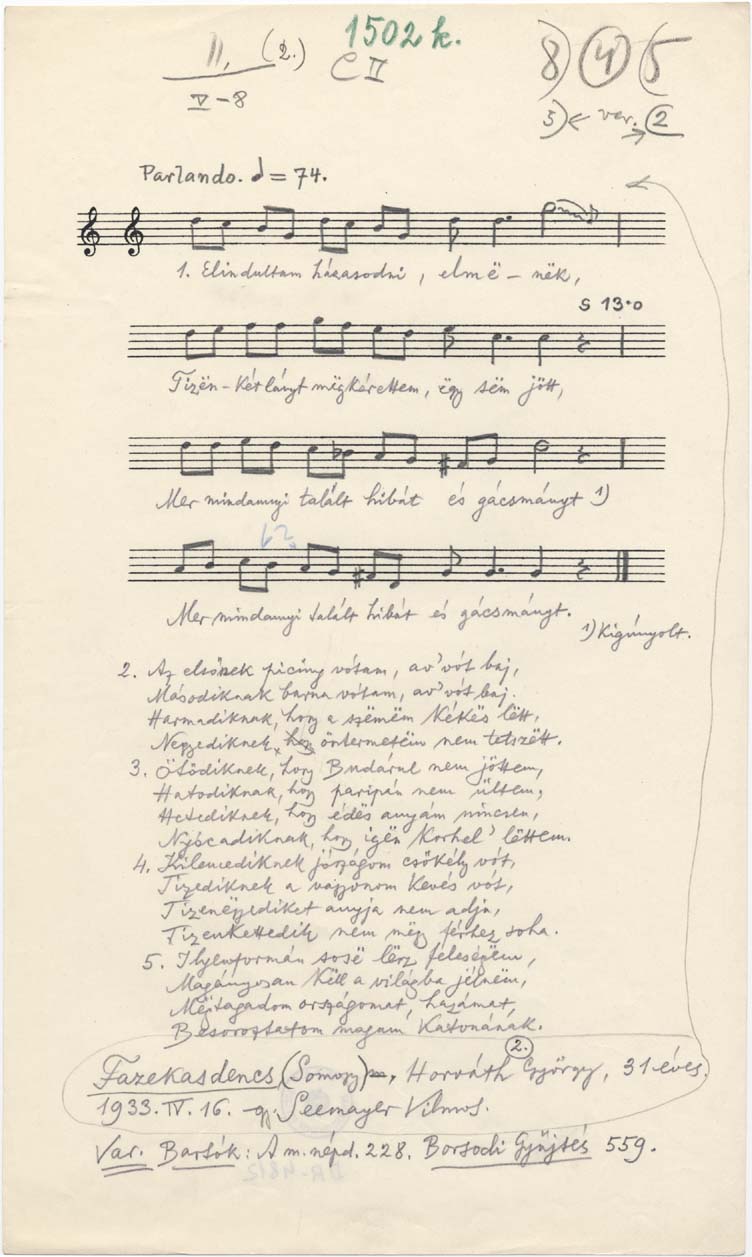 II, (2.)
V-8
1502 k.
C II
8) (4) (5
5) ← var. → (2
Parlando. ♩ = 74.
1. Elindultam házasodni, elmë-nëk,
S 13·0
Tizën-két lányt mëgkérettem, ëgy sëm jött,
Mer mindannyi talált hibát és gácsmányt 1)
Mer mindannyi talált hibát és gácsmányt.
1) Kigúnyolt.
2. Az elsőnek piciny vótam, av' vót baj,
Másodiknak barna vótam, av' vót baj.
Harmadiknak, hogy a szëmëm kékës lëtt,
Negyediknek, hogy öntermetëm nem tetszëtt.
3. Ötödiknek, hogy Budárul nem jöttem,
Hatodiknak, hogy paripán nem ültem,
Hetediknek, hogy édës anyám nincsen,
Nyócadiknak, hogy igën korhel' lëttem.
4. Kilencediknek jószágom csökély vót,
Tizediknek a vagyonom kevés vót,
Tizenëgyediket anyja nem adja,
Tizenkettedik nem mëgy férhez soha.
5. Ilyenformán sosë lësz feleségëm,
Magányosan këll a világba jélnëm,
Mëjtagadom országomat, hazámat,
Besoroztatom magam katonának.
2.
Fazekasdencs, (Somogy) Horváth György, 31 éves.
1933. IV. 16. gy. Seemayer Vilmos.
Var. Bartók: A m. népd. 228. Borsodi Gyűjtés 559.